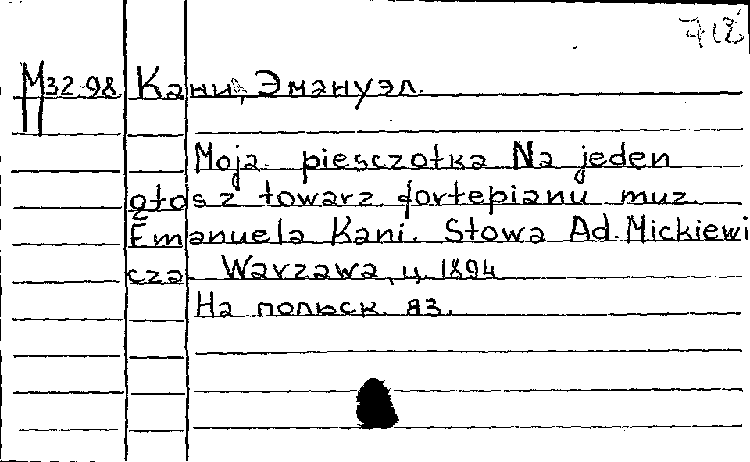 718
М32.98 Кани, Эмануэл.
Moja pieszczotka Na jeden
głos z towarz. fortepianu muz.
Emanuela Kani. Słowa Ad. Mickiewi
cza. Warzawa, ц. 1894
На польск. яз.